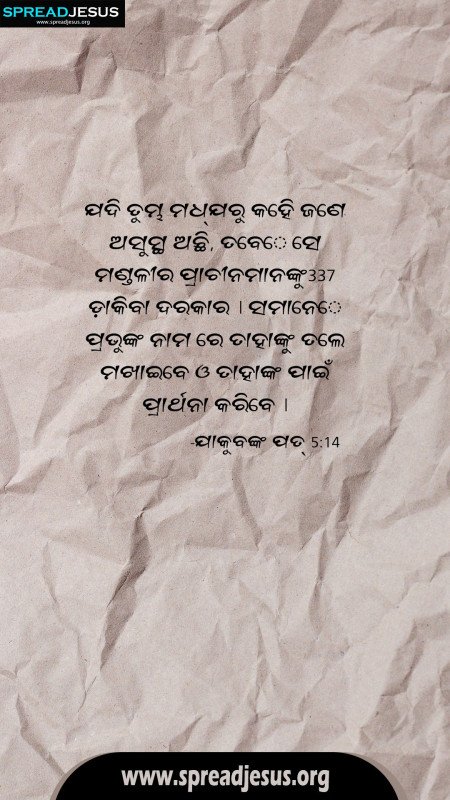 SPREADJESUS
www.spreadjesus.org
ଯଦି ତୁମ୍ଭ ମଧ୍ଯରୁ କହେି ଜଣେ
ଅସୁସ୍ଥ ଅଛି, ତବେେ ସେ
ମଣ୍ଡଳୀର ପ୍ରାଚୀନମାନଙ୍କୁ337
ଡ଼ାକିବା ଦରକାର । ସମାନେେ
ପ୍ରଭୁଙ୍କ ନାମ ରେ ତାହାଙ୍କୁ ତଲେ
ମଖାଇବେ ଓ ତାହାଙ୍କ ପାଇଁ
ପ୍ରାର୍ଥନା କରିବେ ।
-ଯାକୁବଙ୍କ ପତ୍ 5:14
www.spreadjesus.org